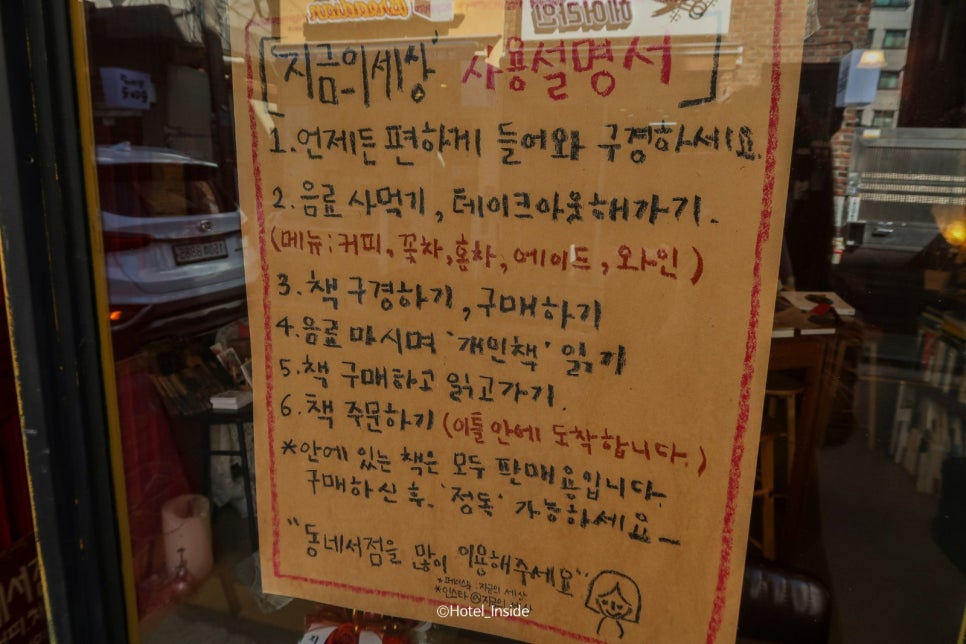 헤이리안
['지금의세상' 사용설명서]
1. 언제든 편하게 들어와 구경하세요.
2. 음료 사먹기, 테이크아웃해가기.
(메뉴: 커피, 꽃차, 홍차, 에이드, 와인)
3. 책 구경하기, 구매하기
4. 음료 마시며 '개인책' 읽기
5. 책 구매하고 읽고가기.
6. 책 주문하기 (이틀 안에 도착합니다.)
*안에 있는 책은 모두 판매용입니다.
구매하신 후, '정독' 가능하세요~
"동네서점을 많이 이용해주세요"
*페이스북 : 지금의 세상
*인스타 @지금의
©Hotel_Inside